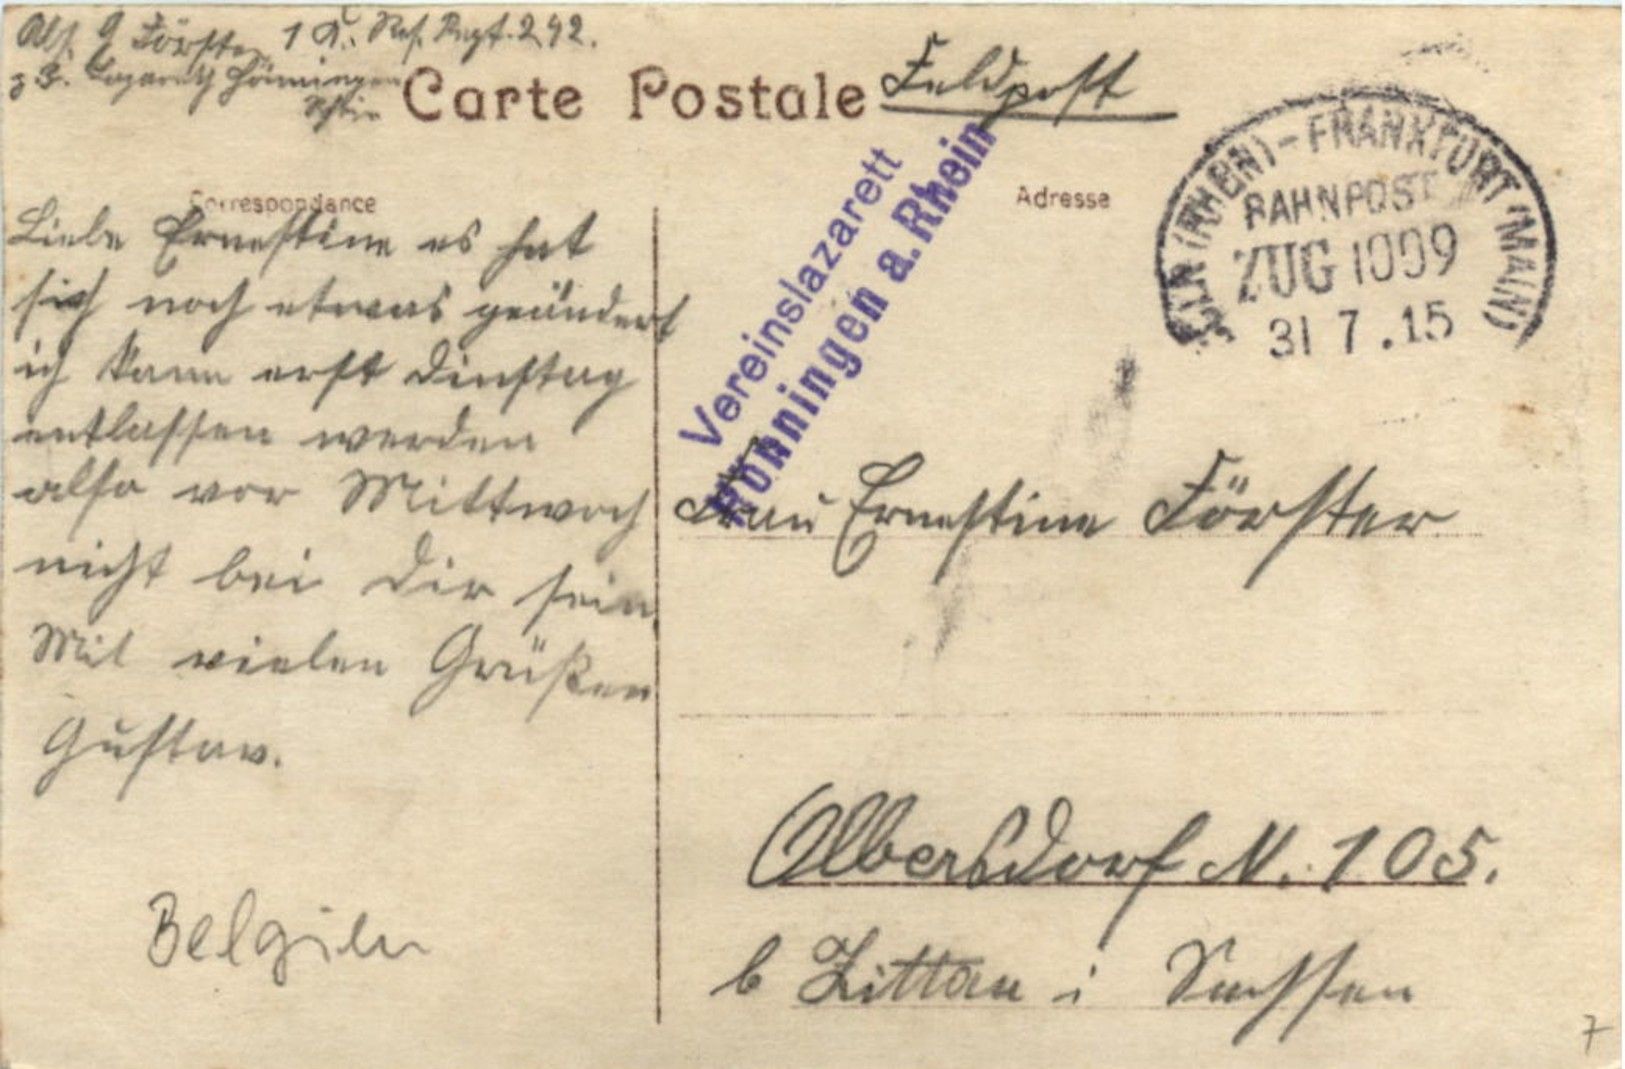 Abs. G Förster 1 K. Res. Regt. 242.
z Z. Lazareth Hönningen
Rhein
Carte Postale
Feldpost
Correspondance
Adresse
CÖLN (RHEIN) - FRANKFURT (MAIN)
BAHNPOST
ZUG 1009
31 7.15
Vereinslazarett
Hönningen a. Rhein
Liebe Ernestine es hat
sich noch etwas geändert
ich kann erst Dinstag
entlassen werden
also vor Mittwoch
nicht bei Dir sein
Mit vielen Grüßen
Gustav.
Belgien
Frau Ernestine Förster
Olbersdorf N. 105.
b Zittau i Sachsen
7